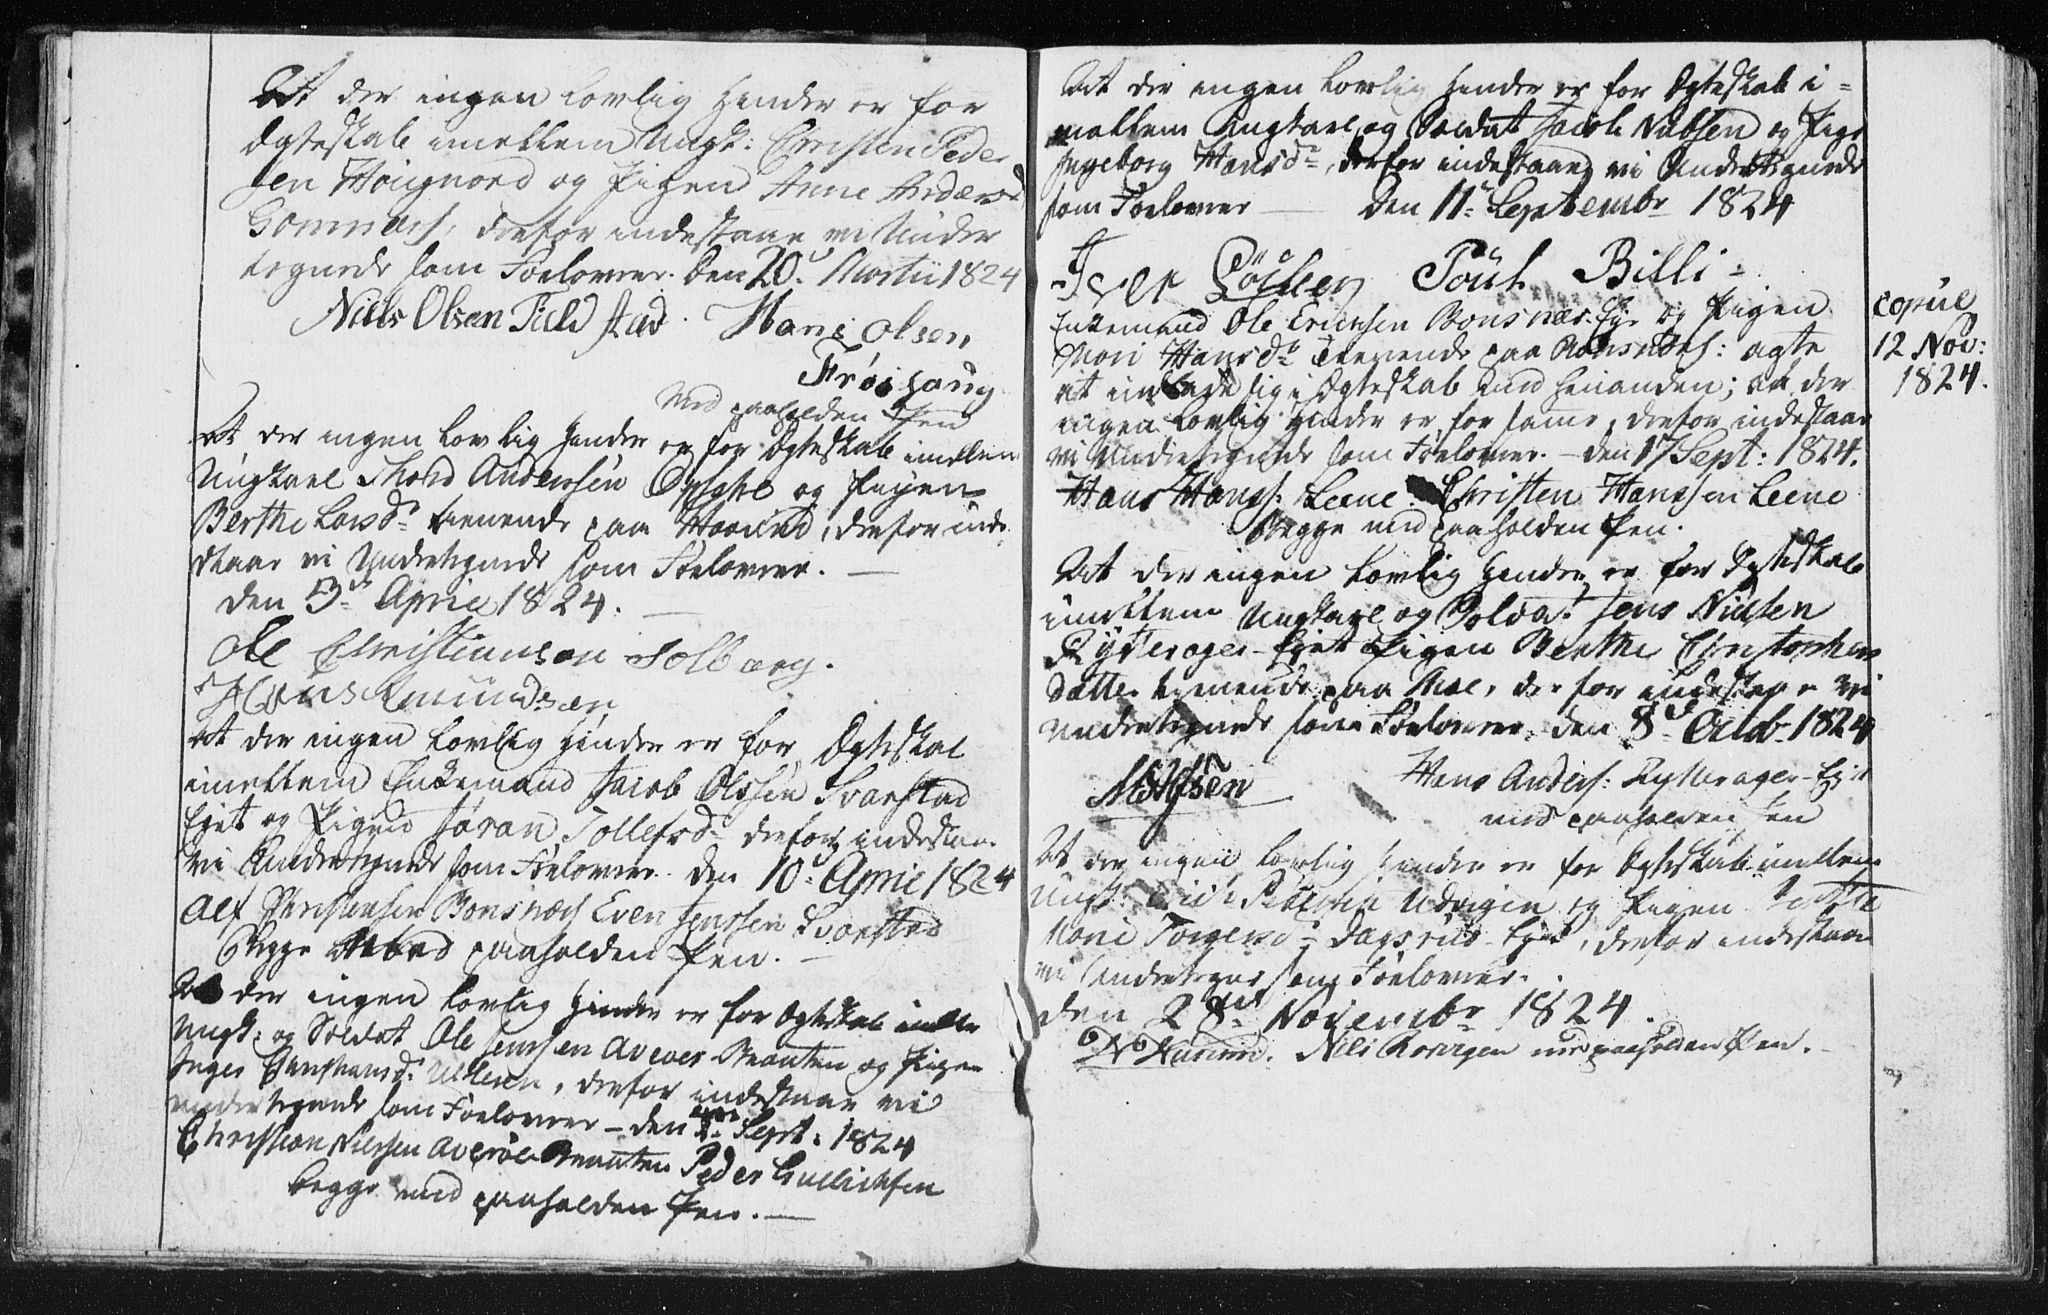 At der ingen lovlig Hinder er for
Ægteskab imellem Ungk: Christen Peder
sen Høignord og Pigen Anne Anders
derfor indestaae vi Under
tegnede som Forlovere. Den 20. Martii 1824
Niels Olsen Field stad. Hans Olsen
Frøishaug
med paaholden Pen
At der ingen lovlig Hinder er for Ægteskab imellem
Ungkarl Thord Andersen og Pigen
Berthe Larsd. tienende paa derfor inde
staae vi Undertegnede som Forlovere. —
den 3de April 1824. —
Ole Christiansen Solberg.
Hans Amundsen
At der ingen lovlig Hinder er for Ægteskab
imellem Enkemand Jacob Olssen Svarstad
Eiet og Pigen Jøran Tollefsd. derfor indestaae
vi Undertegnede som Forlovere. den 10. April 1824
Alf Christensen Bonsnæs Even Jenssen Svarstad
Begge med paaholden Pen. —
At der ingen lovlig Hinder er for Ægteskab imellem
Ungk: og Soldat Ole Jenssen og Pigen
Inger Christiansd. derfor indestaae vi
undertegnede som Forlovere — den Sept: 1824
Christian Nilssen Peder Gullichsen
begge med paaholden Pen. —
At der ingen lovlig Hinder er for Ægteskab i=
mellem Ungkarl og Soldat Jacob Nielsen og Pige
Ingeborg Hansd. derfor indestaae vi Undertegnede
som Forlovere — Den 11. Septembr 1824
Iver Poul Billi
Enkemand Ole Ericksen Bonsnæs Eie og Pigen
Mari Hansd. tienende paa Bonsnæs: agte
at indlade sig i Ægteskab med hinanden; At der
ingen lovlig Hinder er for samme, derfor indestaae
vi Undertegnede som Forlovere. — den 17 Sept: 1824.
Hans Hanss. Leene Christen Hanssen Leene
Begge med paaholden Pen.
copul
12 Nov:
1824.
At der ingen lovlig Hinder er for Ægteskab
imellem Ungkarl og Soldat Jens Nielsen
Rytterager-Eiet Pigen Berthe Christophers
datter tienende paa Moe, derfor indestaae vi
undertegnede som Forlovere. den 8. Octob. 1824
Hans Anders: Rytterager-Eiet
med paaholden Pen
At der ingen lovlig Hinder er for Ægteskab imellem
Ungk: Erich Pedersen Udvigen og Pigen
Marie Torgersd. Dagsrud-Eiet, derfor indestaae
vi Undertegnede som Forlovere.
den 28de Novembr 1824.
Nils med paaholden Pen. —